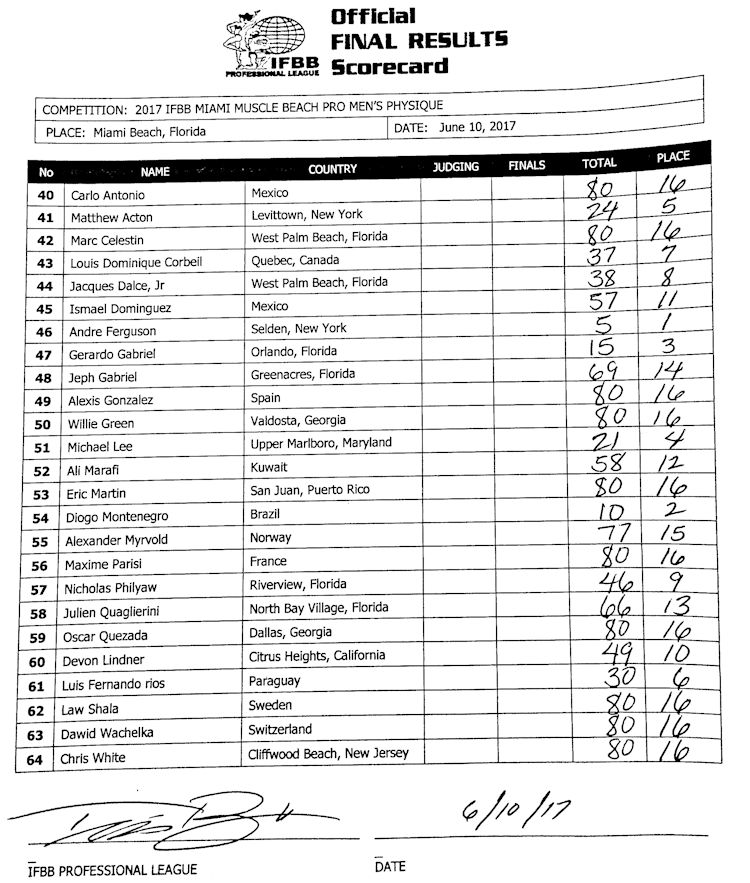 Official
FINAL RESULTS
Scorecard
IFBB
PROFESSIONAL LEAGUE
COMPETITION: 2017 IFBB MIAMI MUSCLE BEACH PRO MEN'S PHYSIQUE
PLACE: Miami Beach, Florida DATE: June 10, 2017
No NAME COUNTRY JUDGING FINALS TOTAL PLACE
40 Carlo Antonio Mexico 80 16
41 Matthew Acton Levittown, New York 24 5
42 Marc Celestin West Palm Beach, Florida 80 16
43 Louis Dominique Corbeil Quebec, Canada 37 7
44 Jacques Dalce, Jr West Palm Beach, Florida 38 8
45 Ismael Dominguez Mexico 57 11
46 Andre Ferguson Selden, New York 5 1
47 Gerardo Gabriel Orlando, Florida 15 3
48 Jeph Gabriel Greenacres, Florida 69 14
49 Alexis Gonzalez Spain 80 16
50 Willie Green Valdosta, Georgia 80 16
51 Michael Lee Upper Marlboro, Maryland 21 4
52 Ali Marafi Kuwait 58 12
53 Eric Martin San Juan, Puerto Rico 80 16
54 Diogo Montenegro Brazil 10 2
55 Alexander Myrvold Norway 77 15
56 Maxime Parisi France 80 16
57 Nicholas Philyaw Riverview, Florida 46 9
58 Julien Quaglierini North Bay Village, Florida 66 13
59 Oscar Quezada Dallas, Georgia 80 16
60 Devon Lindner Citrus Heights, California 49 10
61 Luis Fernando rios Paraguay 30 6
62 Law Shala Sweden 80 16
63 Dawid Wachelka Switzerland 80 16
64 Chris White Cliffwood Beach, New Jersey 80 16
6/10/17
IFBB PROFESSIONAL LEAGUE DATE